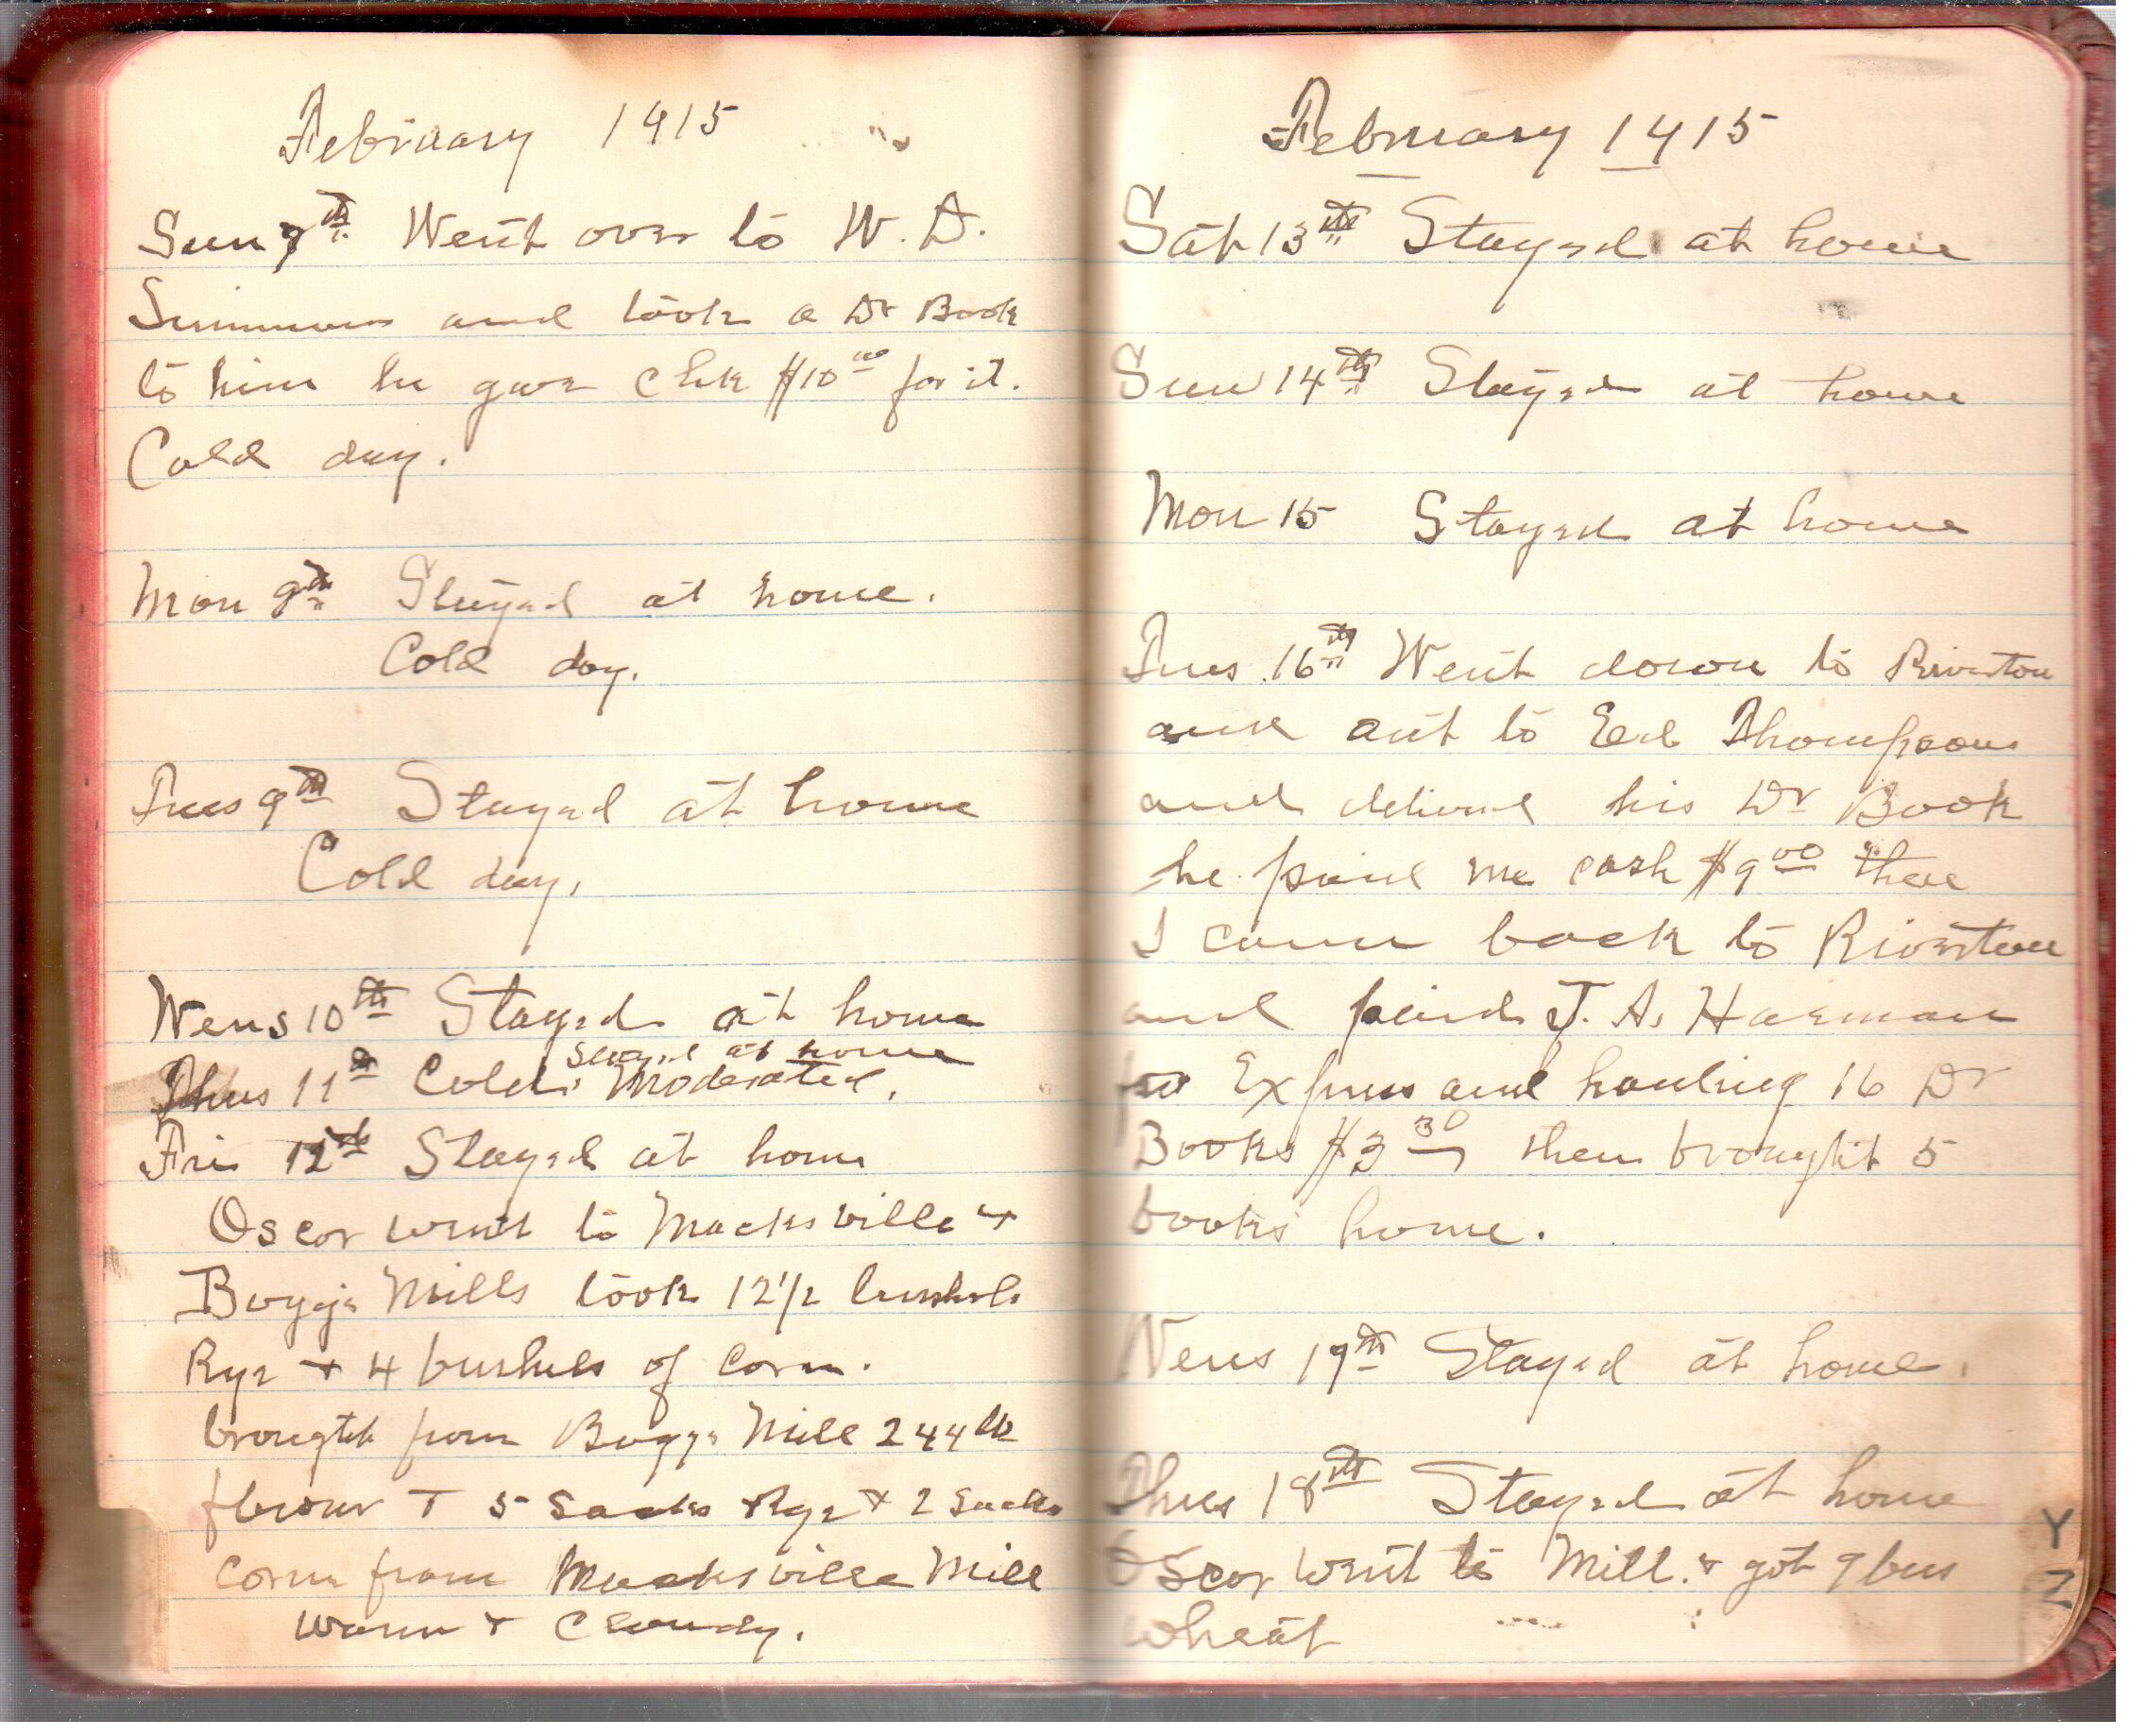 February 1915
Sun 7th Went over to W. D.
Simmons and took a Dr Book
to him he gave chk $10 00 for it.
Cold day.
Mon 8th Stayed at home.
Cold day.
Tues 9th Stayed at home
Cold day.
Wens 10th Stayed at home
Stayed at home
Thus 11th Cold, Moderated.
Fri 12th Stayed at home
Oscar went to Macksville +
Boggs Mills took 12 1/2 bushels
Rye + 4 bushels of corn.
brought from Boggs Mill 244 lb
flour + 5 Sacks Rye + 2 Sacks
corn from Macksville Mill
Warm + Cloudy.
February 1915
Sat 13th Stayed at home
Sun 14th Stayed at home
Mon 15 Stayed at home
Tues 16th Went down to Riverton
and out to Ed Thompsons
and deliverd his Dr Book
he paid me cash $9 00 then
I came back to Riverton
and paid J. A. Harman
for Express and hauling 16 Dr
Books $3 30 then brought 5
books home.
Wens 17th Stayed at home.
Thus 18th Stayed at home
Oscar went to Mill. + got 9 bus
wheat
Y
Z